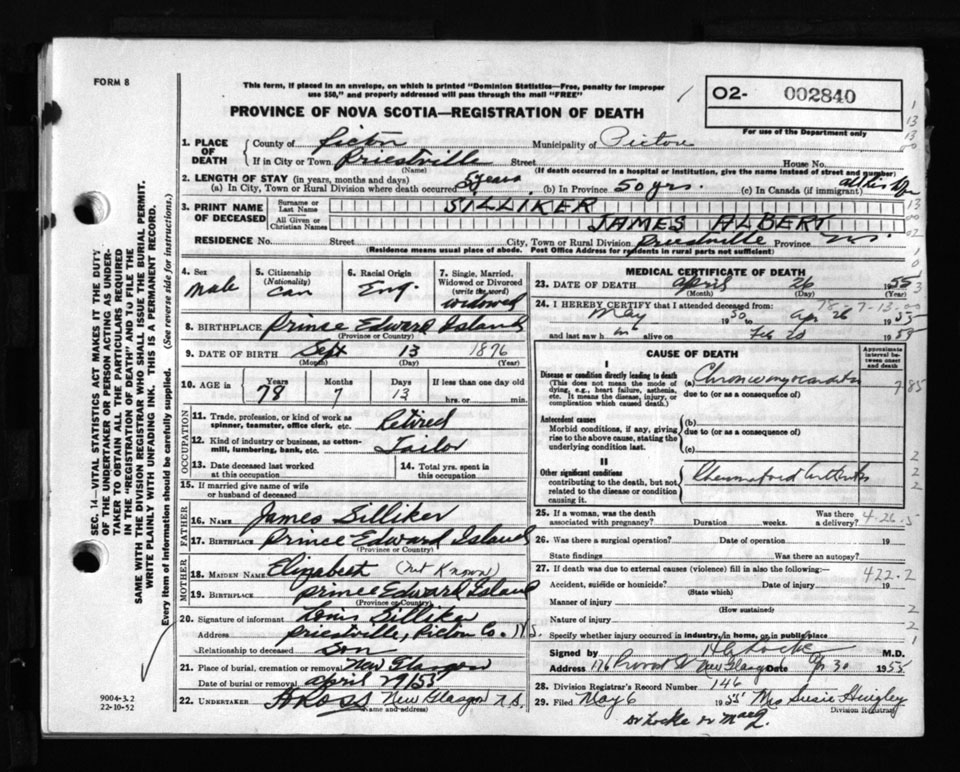 FORM 8
This form, if placed in an envelope, on which is printed "Dominion Statistics—Free, penalty for improper
use $50," and properly addressed will pass through the mail "FREE"
PROVINCE OF NOVA SCOTIA—REGISTRATION OF DEATH
O2- 002840
For use of the Department only
1. PLACE OF DEATH
County of Pictou Municipality of Pictou
If in City or Town Priestville Street House No.
(Name) (If death occurred in a hospital or institution, give the name instead of street and number)
2. LENGTH OF STAY (in years, months and days)
(a) In City, Town or Rural Division where death occurred 50 years (b) In Province 50 yrs. (c) In Canada (if immigrant) all his life
3. PRINT NAME OF DECEASED
Surname or Last Name SILLIKER
All Given or Christian Names JAMES ALBERT
RESIDENCE No. Street City, Town or Rural Division Priestville Province N.S.
(Residence means usual place of abode. Post Office Address for residents in rural parts not sufficient)
4. Sex Male
5. Citizenship (Nationality) Can
6. Racial Origin Eng.
7. Single, Married, Widowed or Divorced (write the word) Widowed
8. BIRTHPLACE Prince Edward Island
(Province or Country)
9. DATE OF BIRTH Sept 13 1876
(Month) (Day) (Year)
10. AGE in Years 78 Months 7 Days 13 If less than one day old hrs. or min.
OCCUPATION
11. Trade, profession, or kind of work as spinner, teamster, office clerk, etc. Retired
12. Kind of industry or business, as cotton-mill, lumbering, bank, etc. Tailor
13. Date deceased last worked at this occupation
14. Total yrs. spent in this occupation
15. If married give name of wife or husband of deceased
FATHER
16. NAME James Silliker
17. BIRTHPLACE Prince Edward Island
(Province or Country)
MOTHER
18. MAIDEN NAME Elizabeth (not Known)
19. BIRTHPLACE Prince Edward Island
(Province or Country)
20. Signature of informant Louis Silliker
Address Priestville, Pictou Co. N.S.
Relationship to deceased Son
21. Place of burial, cremation or removal New Glasgow
Date of burial or removal April 29/55
22. UNDERTAKER H Ross New Glasgow N.S.
(Name and address)
MEDICAL CERTIFICATE OF DEATH
23. DATE OF DEATH April 26 1955
(Month) (Day) (Year)
78-7-13.00
24. I HEREBY CERTIFY that I attended deceased from:
May 1950 to Apr 26 1955
and last saw him alive on Feb 20 1955
CAUSE OF DEATH
Approximate interval between onset and death
I
Disease or condition directly leading to death
(This does not mean the mode of dying, e.g., heart failure, asthenia, etc. It means the disease, injury, or complication which caused death.)
(a) Chronic myocarditis
due to (or as a consequence of)
Antecedent causes
Morbid conditions, if any, giving rise to the above cause, stating the underlying condition last.
(b)
due to (or as a consequence of)
(c)
II
Other significant conditions
contributing to the death, but not related to the disease or condition causing it.
Rheumatoid Arthritis
25. If a woman, was the death associated with pregnancy? Duration weeks. Was there a delivery?
4-26-5
26. Was there a surgical operation? Date of operation 19
State findings Was there an autopsy?
27. If death was due to external causes (violence) fill in also the following:—
422.2
Accident, suicide or homicide? Date of injury 19
(State which)
Manner of injury
(How sustained)
Nature of injury
Specify whether injury occurred in industry, in home, or in public place
Signed by H G Locke M.D.
Address 176 Provost St New Glasgow Date Ap 30 1955
28. Division Registrar's Record Number 146
29. Filed May 6 1955 Mrs Susie
Division Registrar
Dr Locke
SEC. 14—VITAL STATISTICS ACT MAKES IT THE DUTY
OF THE UNDERTAKER OR PERSON ACTING AS UNDER-
TAKER TO OBTAIN ALL THE PARTICULARS REQUIRED
IN THE "REGISTRATION OF DEATH" AND TO FILE THE
SAME WITH THE DIVISION REGISTRAR WHO SHALL ISSUE THE BURIAL PERMIT.
WRITE PLAINLY WITH UNFADING INK. THIS IS A PERMANENT RECORD.
Every item of information should be carefully supplied. (See reverse side for instructions.)
9004-3.2
22-10-52